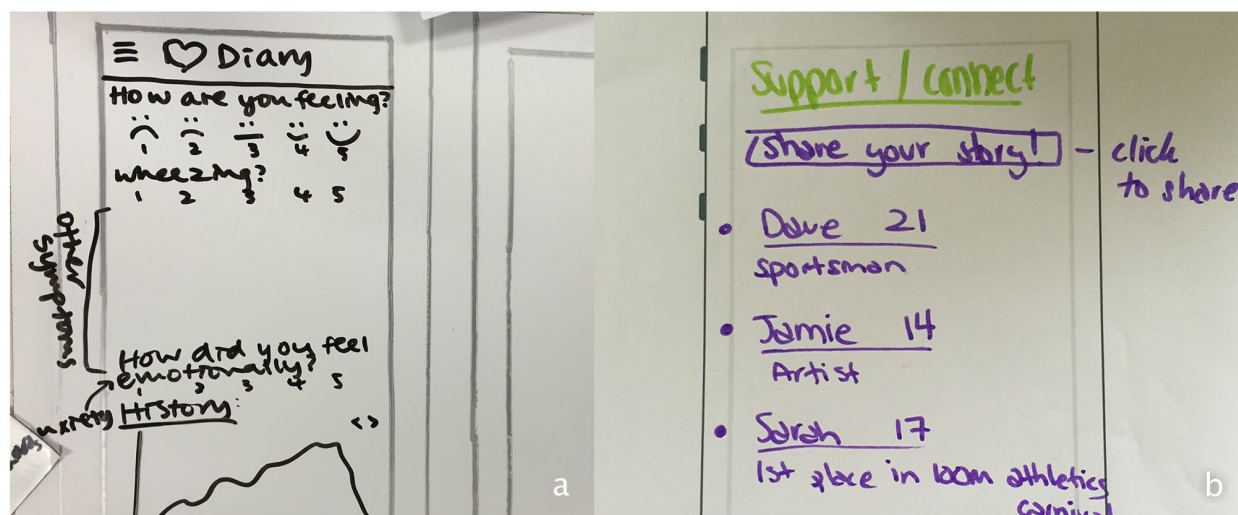 Diary
How are you feeling?
1 2 3 4 5
wheezing?
1 2 3 4 5
other
symptoms
How did you feel
emotionally?
1 2 3 4 5
anxiety
History:
< >
a
Support / connect
Share your story! - click
to share
• Dave 21
sportsman
• Jamie 14
Artist
• Sarah 17
1st place in 100m athletics
carnival
b